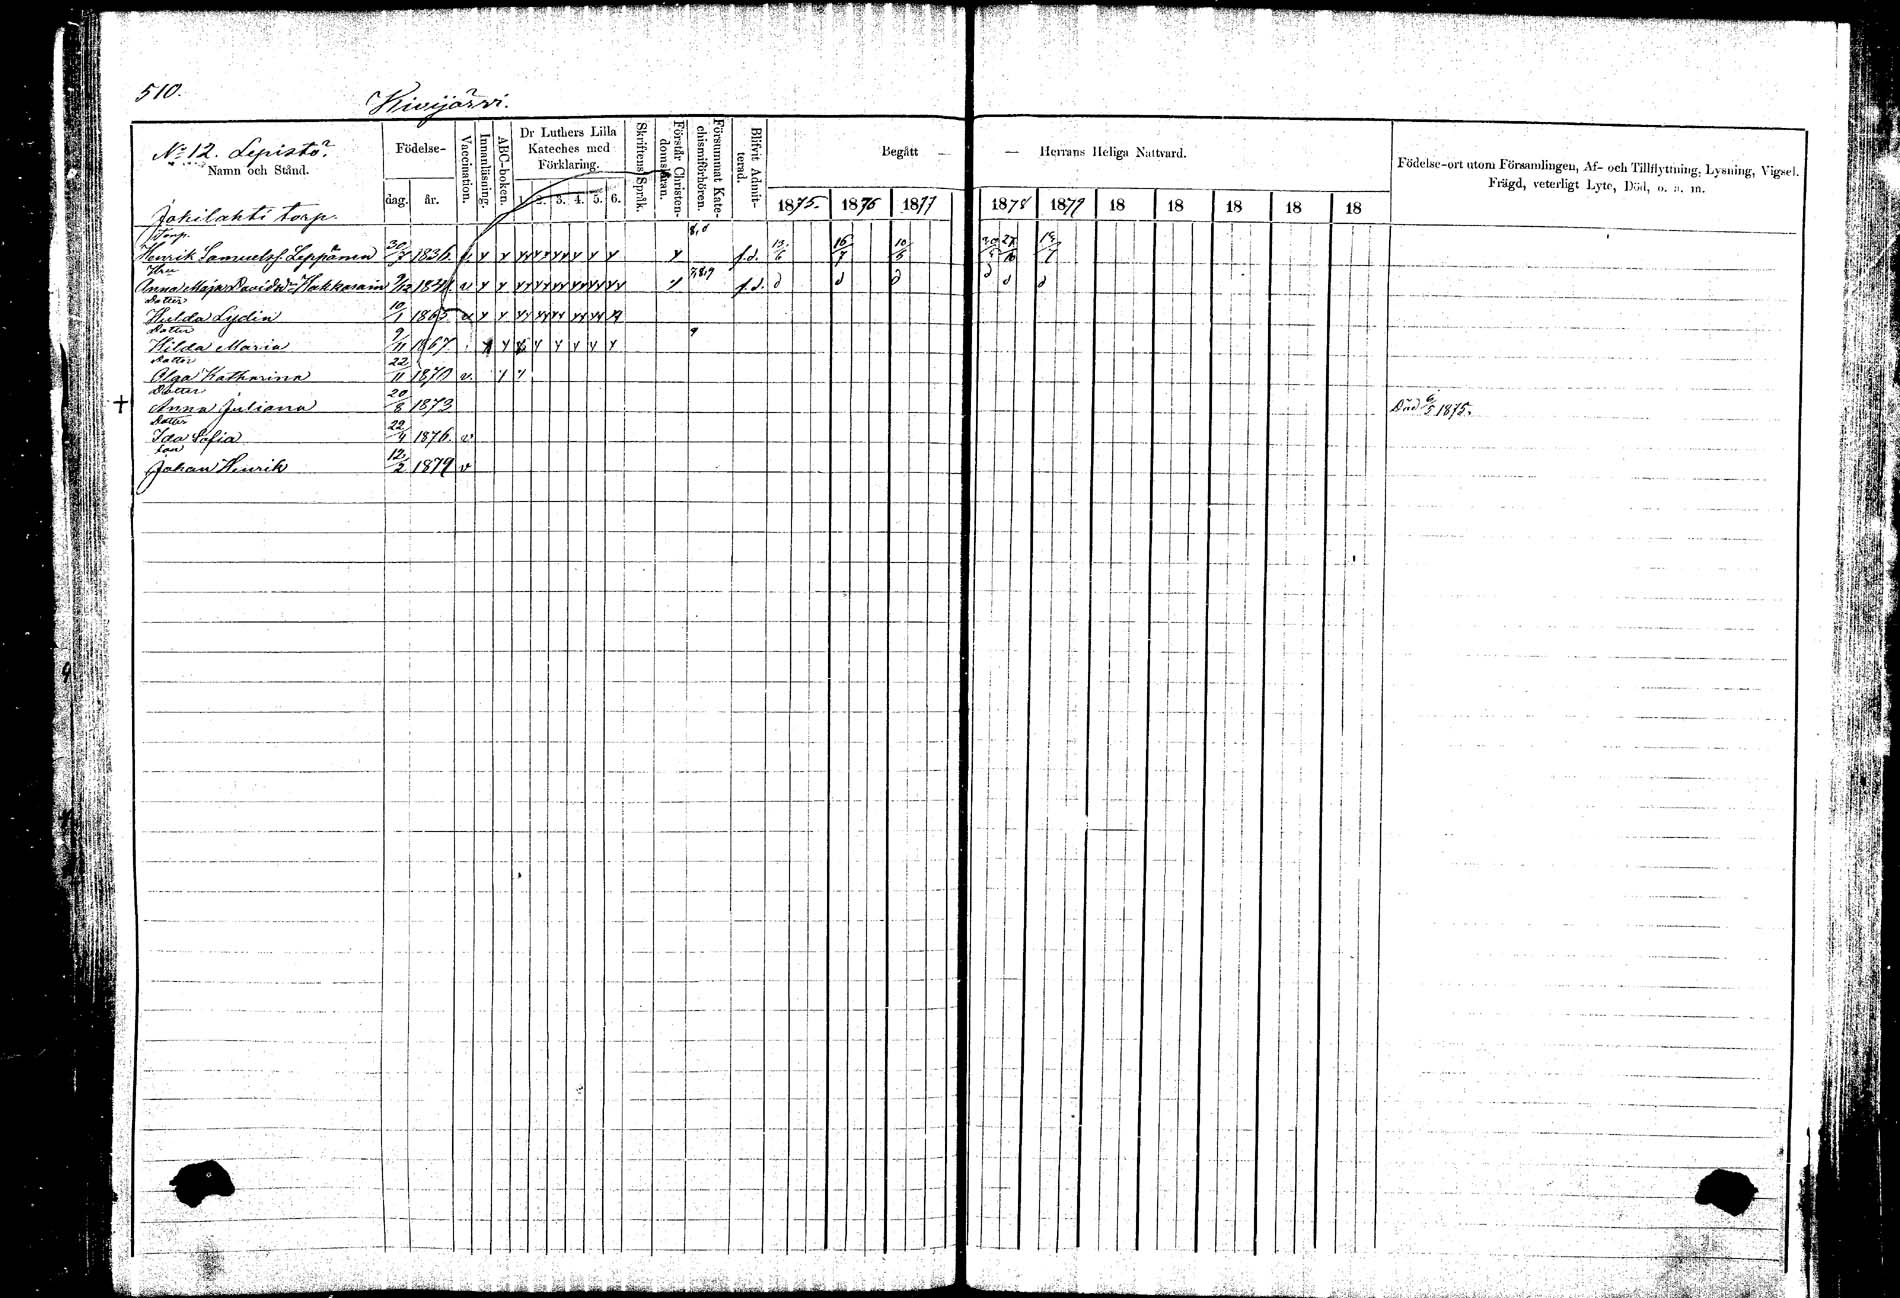 510.
Kivijärvi.
No 12. Lepistö
Namn och Stånd.
Födelse-
dag. år.
Vaccination.
Innanläsning.
ABC-boken.
Dr Luthers Lilla Kateches med Förklaring.
1. 2. 3. 4. 5. 6.
Skriftens Språk.
Förstår Christendomsläran.
Försummat Katechismiförhören.
Blifvit Admitterad.
Begått — — Herrans Heliga Nattvard.
1875. 1876 1877 1878 1879 18 18 18 18 18
Födelse-ort utom Församlingen, Af- och Tillflyttning, Lysning, Vigsel.
Frägd, veterligt Lyte, Död, o. a. m.
Jokilahti torp.
Torp.
Henrik Samuelss. Leppänen 30/7 1836. f.d. 16/7 10/5
Hru
Anna Maja Davidsdr Hakkarain 9/12 7,8,9 f.d. d d d d d d
Dotter
Hulda Lydia 10/1 1865 v
Dotter
Hilda Maria 9/11 1867. 9
Dotter
Olga Katharina 22/11 1870 v.
Dotter
+ Anna Juliana 20/8 1873 Död 6/5 1875.
Dotter
Ida Sofia 22/4 1876. v
Son
Johan Henrik 12/2 1879 v